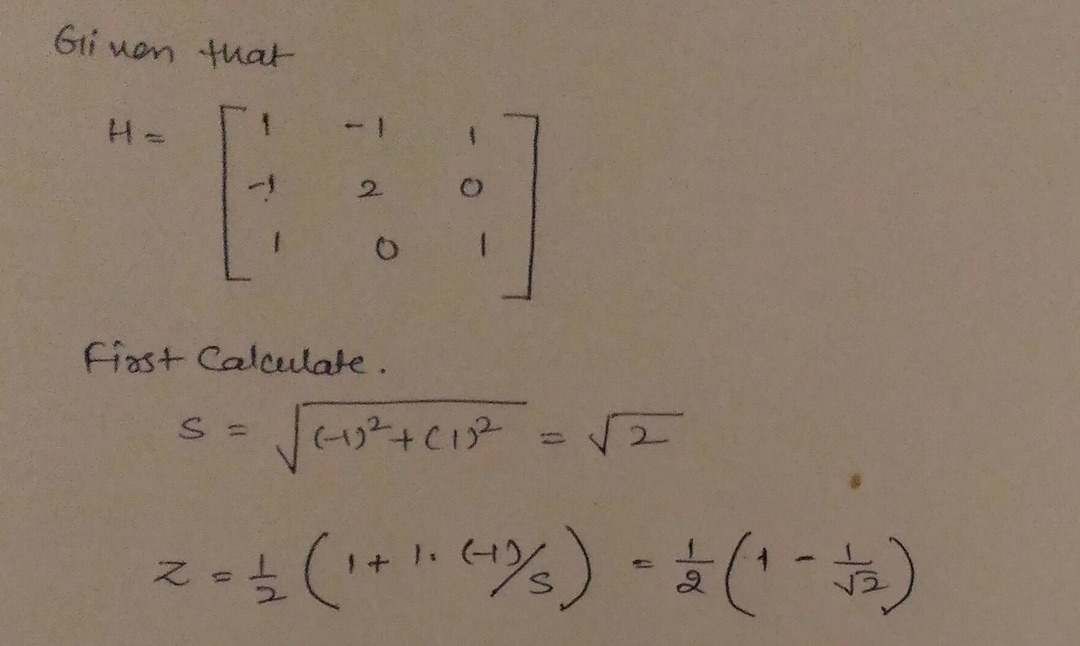 Given that
H = [ 1 -1 1
-1 2 0
1 0 1 ]
First Calculate.
S = √((-1)² + (1)²) = √2
Z = 1/2 (1 + 1. (-1)/S) = 1/2 (1 - 1/√2)